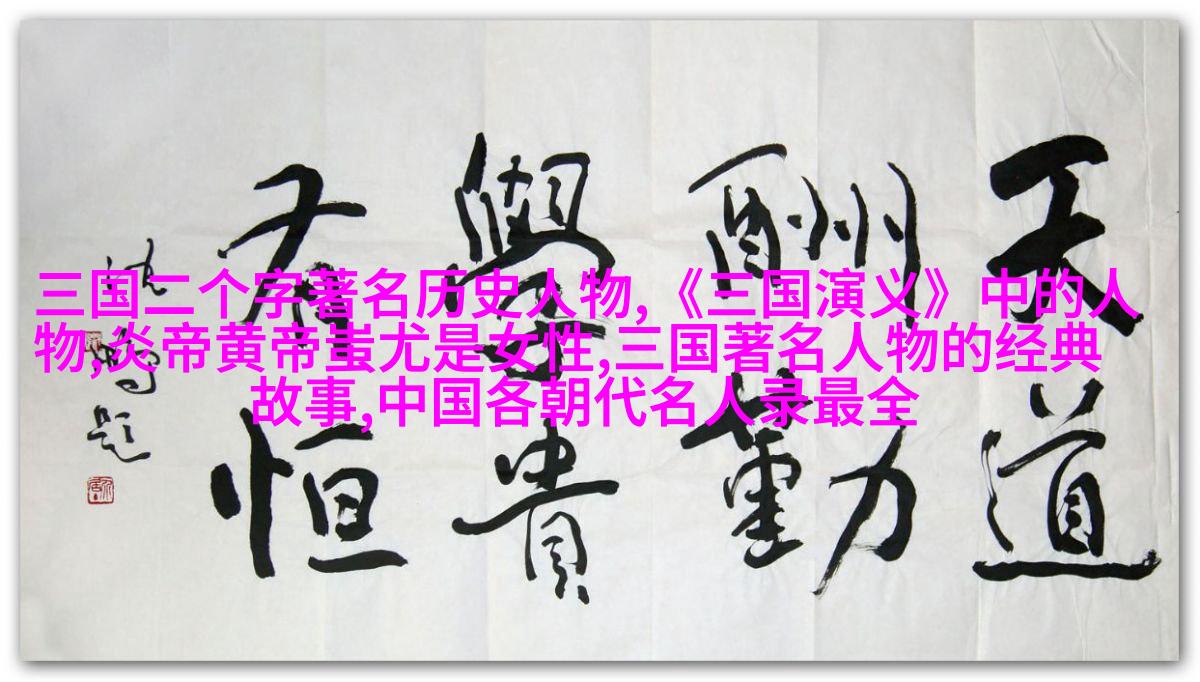 三国二个字著名历史人物,《三国演义》中的人
物,炎帝黄帝蚩尤是女性,三国著名人物的经典
故事,中国各朝代名人录最全
天道
酬勤
學貴
有恒
沈鹏题